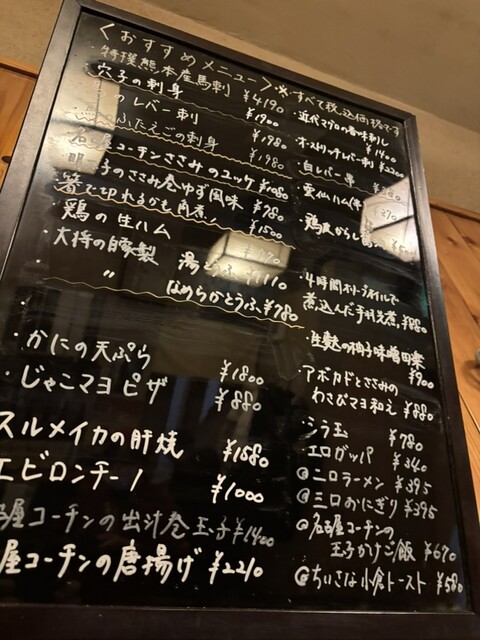 〈おすすめメニュー〉※すべて税込価格です
・特撰熊本産馬刺 ¥4190
穴子の刺身 ¥1900
のレバー刺 ¥1980
ふたえごの刺身 ¥1980
名古屋コーチンささみのユッケ ¥1080
明 子のささみ巻ゆず風味 ¥780
箸で切れるかも角煮! ¥1500
・鶏の生ハム
・大将の自豚製 湯どうふ ¥1110
〃 なめらかとうふ ¥780
・かにの天ぷら ¥1800
・じゃこマヨピザ ¥880
スルメイカの肝焼 ¥1580
エビロンチーノ ¥1000
古屋コーチンの出汁巻玉子 ¥1400
屋コーチンの唐揚げ ¥2210
・近代マグロの香味刺し ¥1400
・オーストリッチレバー刺 ¥2200
・白レバー串
・雲仙ハム串
・鶏皮からし
・4時間オリーブオイルで
煮込んだ手羽先煮 ¥880
・生麩の柚子味噌田楽 ¥900
・アボカドとささみの
わさびマヨ和え ¥880
・シラ玉 ¥780
・エログッパ ¥340
@二口ラーメン ¥395
@三口おにぎり ¥395
@名古屋コーチンの
玉子かけご飯 ¥670
@ちいさな小倉トースト ¥580